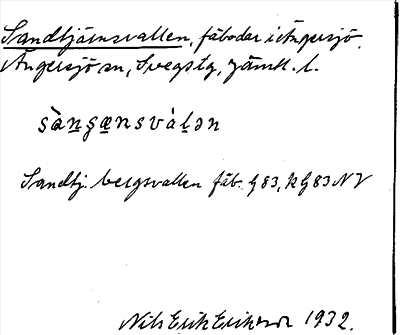 Sandtjärnsvallen, fäbodar i Ängersjö
Ängersjö sn, Svegs tg, Jämtl. l.
sàn̠ʂæn̠svàḷən
Sandtj. bergsvallen fäb. G 83, k G 83 NV
Nils Erik Eriksson 1932.